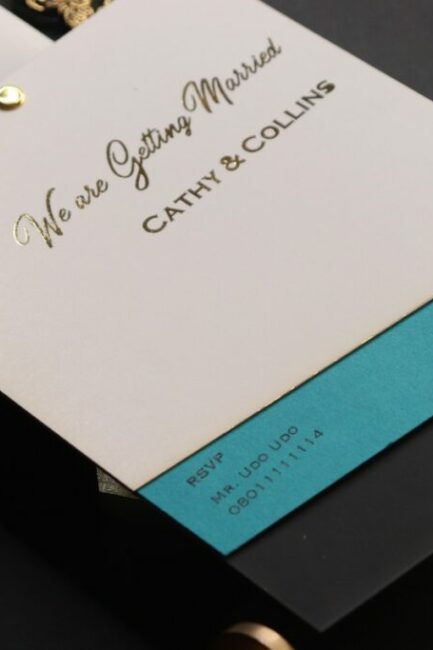 We are Getting Married
CATHY & COLLINS
RSVP
MR. UDO UDO
08011111114